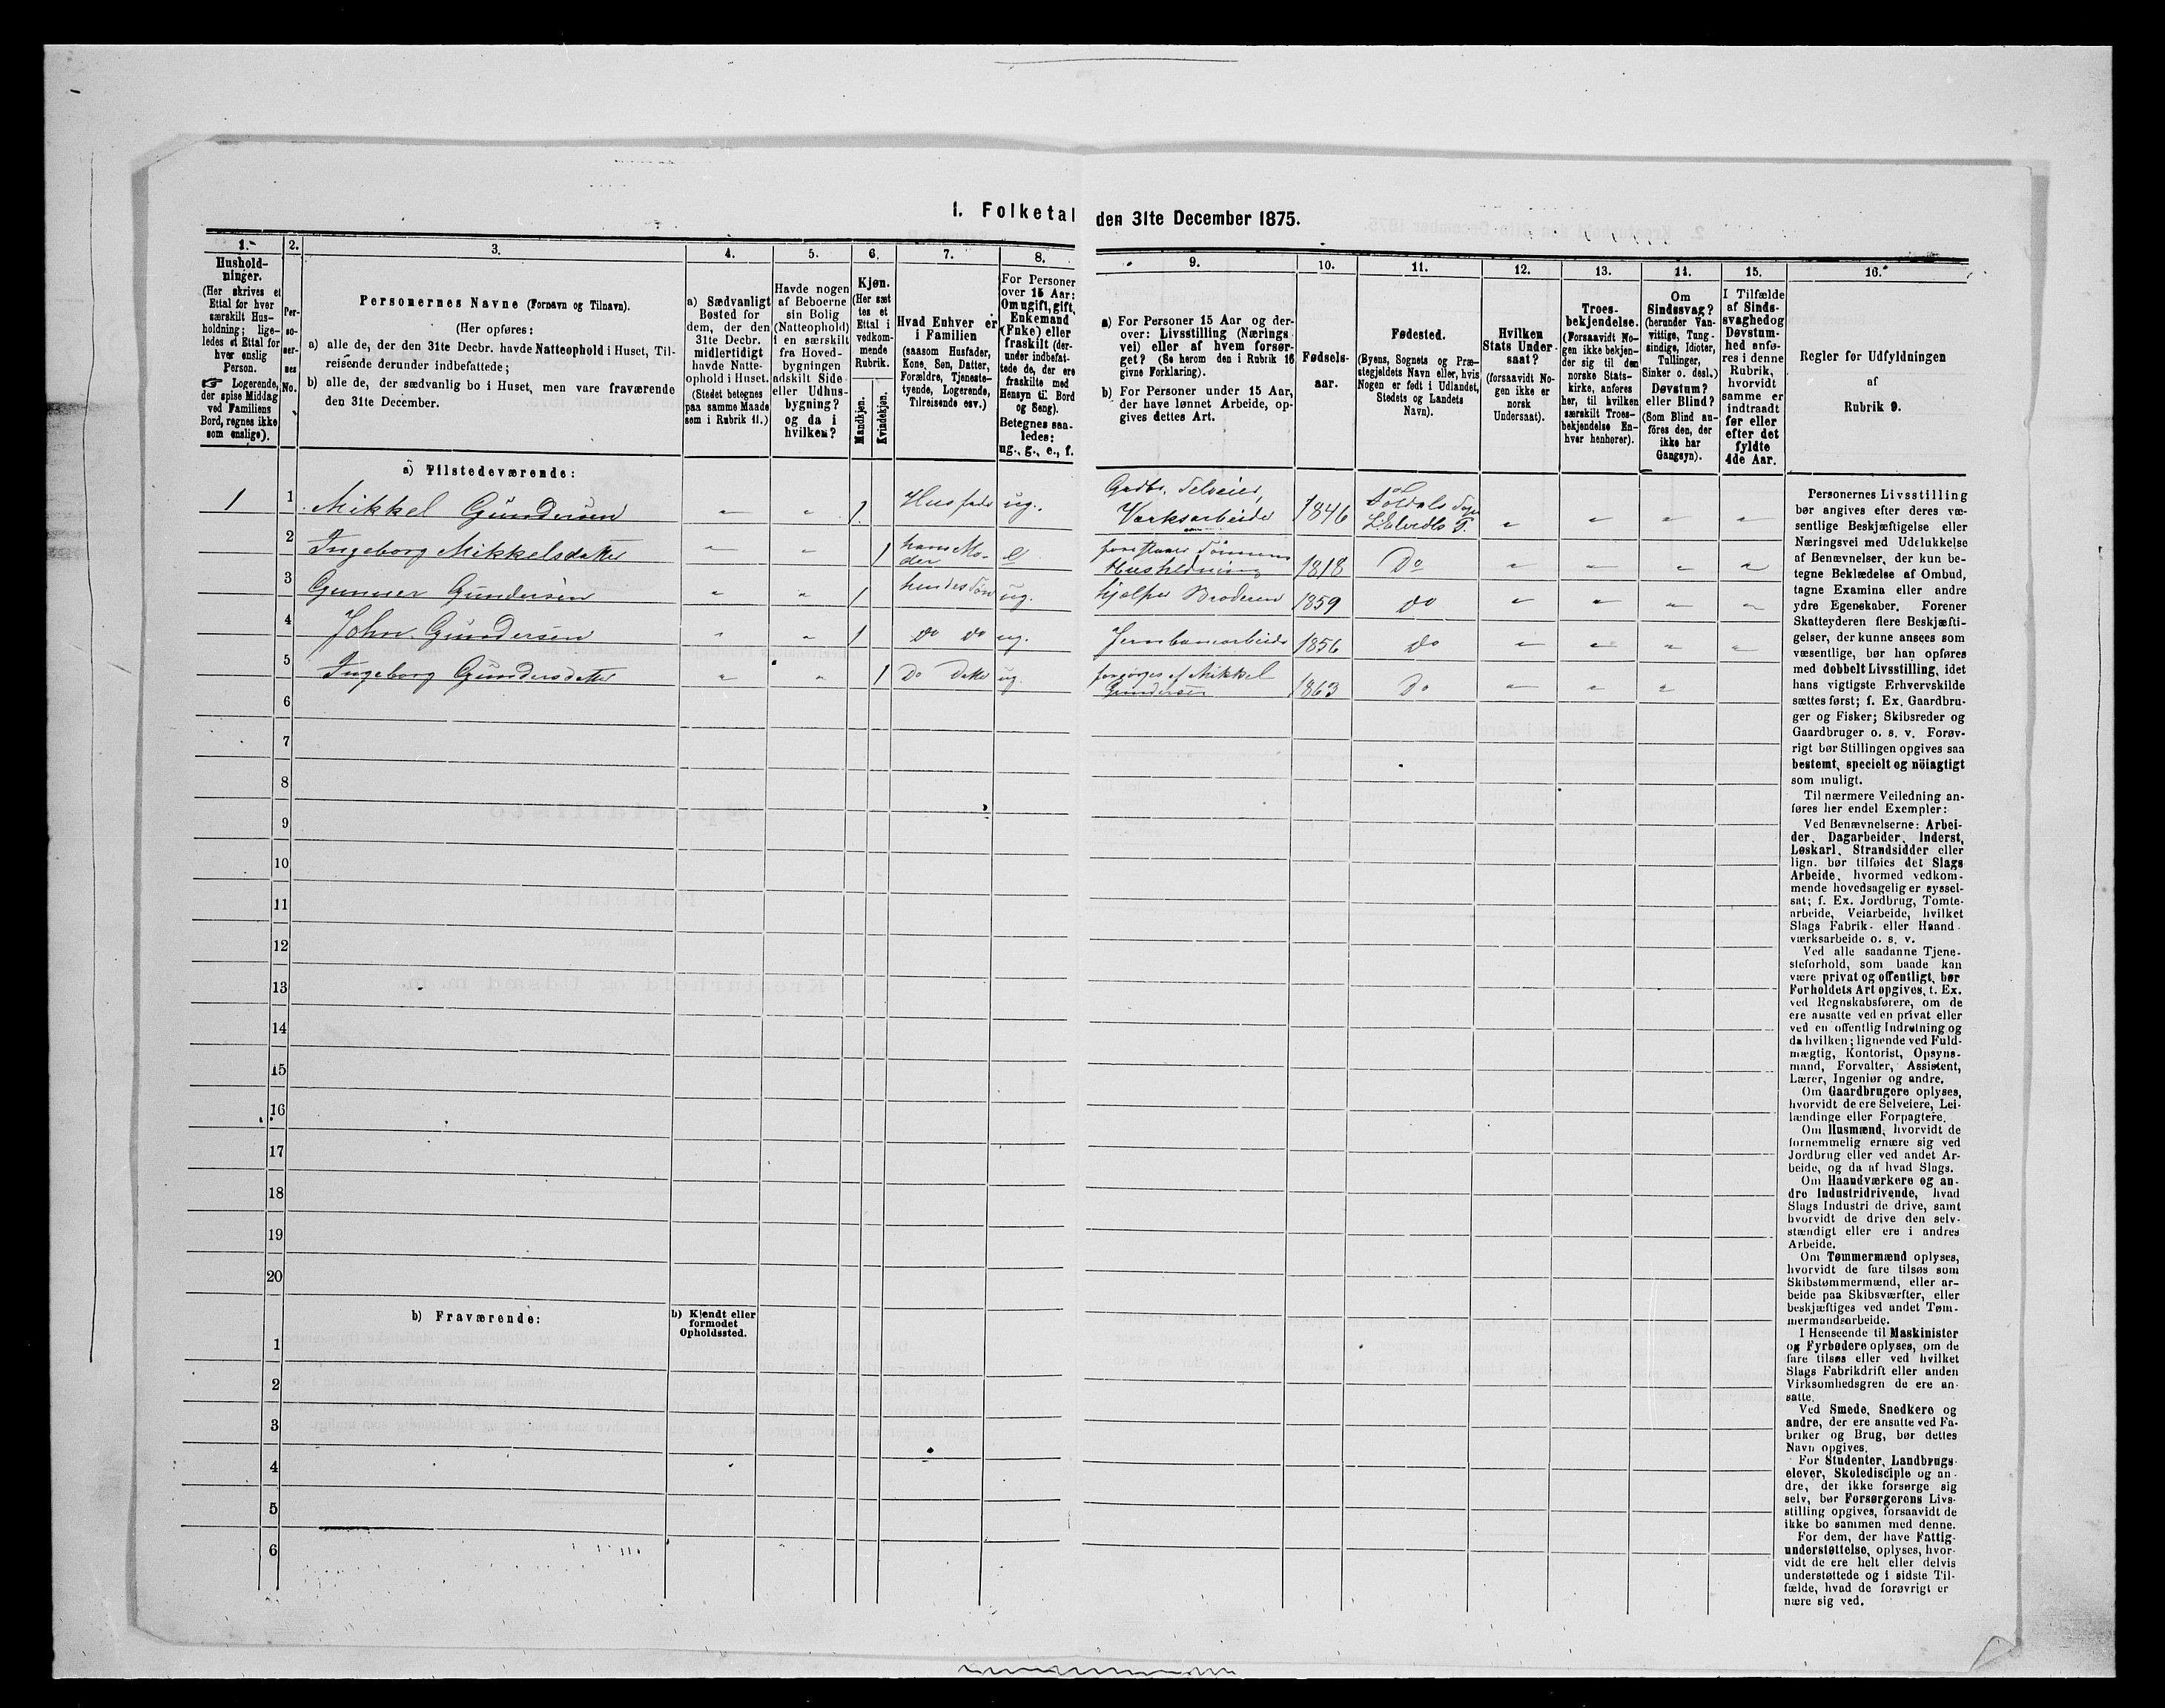 1. Folketal den 31te December 1875.
1.
Hushold-
ninger.
(Her skrives et
Ettal for hver
særskilt Hus-
holdning; lige-
ledes et Ettal for
hver enslig
Person.
☞ Logerende,
der spise Middag
ved Familiens
Bord, regnes ikke
som enslige).
2.
Per-
so-
ner-
nes
No.
3.
Personernes Navne (Fornavn og Tilnavn).
(Her opføres:
a) alle de, der den 31te Decbr. havde Natteophold i Huset, Til-
reisende derunder indbefattede;
b) alle de, der sædvanlig bo i Huset, men vare fraværende
den 31te December.
4.
a) Sædvanligt
Bosted for
dem, der den
31te Decbr.
midlertidigt
havde Natte-
ophold i Huset.
(Stedet betegnes
paa samme Maade
som i Rubrik 11.)
5.
Havde nogen
af Beboerne
sin Bolig
(Natteophold)
i en særskilt
fra Hoved-
bygningen
adskilt Side-
eller Udhus-
bygning?
og da i
hvilken?
6.
Kjøn.
(Her sæt-
tes et
Ettal i
vedkom-
mende
Rubrik.
Mandkjøn.
Kvindekjøn.
7.
Hvad Enhver er
i Familien
(saasom Husfader,
Kone, Søn, Datter,
Forældre, Tjeneste-
tyende, Logerende,
Tilreisende osv.)
8.
For Personer
over 15 Aar:
Om ugift, gift,
Enkemand
(Enke) eller
fraskilt (der-
under indbefat-
tede de, der ere
fraskilte med
Hensyn til Bord
og Seng).
Betegnes saa-
ledes:
ug., g., e., f.
9.
a) For Personer 15 Aar og der-
over: Livsstilling (Nærings-
vei) eller af hvem forsør-
get? (Se herom den i Rubrik 16
givne Forklaring).
b) For Personer under 15 Aar,
der have lønnet Arbeide, op-
gives dettes Art.
10.
Fødsels-
aar.
11.
Fødested.
(Byens, Sognets og Præ-
stegjeldets Navn eller, hvis
Nogen er født i Udlandet,
Stedets og Landets
Navn).
12.
Hvilken
Stats Under-
saat?
(forsaavidt No-
gen ikke er
norsk
Undersaat).
13.
Troes-
bekjendelse.
(Forsaavidt No-
gen ikke bekjen-
der sig til den
norske Stats-
kirke, anføres
her, til hvilken
særskilt Troes-
bekjendelse En-
hver henhører).
14.
Om
Sindssvag?
(herunder Van-
vittige, Tung-
sindige, Idioter,
Tullinger,
Sinker o. desl.)
Døvstum?
eller Blind?
(Som Blind an-
föres den, der
ikke har
Gangsyn).
15.
I Tilfælde
af Sinds-
svaghed og
Døvstum-
hed anfø-
res i denne
Rubrik,
hvorvidt
samme er
indtraadt
før eller
efter det
fyldte
4de Aar.
16.
Regler for Udfyldningen
af
Rubrik 9.
a) Tilstedeværende:
1 1 Mikkel Gundersen " " 1 Husfader ug. Gaardbr. Selveier, Værksarbeider 1846 " " " "
2 Ingeborg Mikkelsdatter " " 1 hans Mo-
der e forestaaer Sønnens
Husholdning 1818 Do " " " "
3 Gunner Gundersen " " 1 hendes Søn ug. hjælper Broderen 1859 Do " " " "
4 John Gundersen " " 1 Do Do ug. Jernbanearbeider 1856 Do " " " "
5 Ingeborg Gundersdatter " " 1 Do Datter ug. forsørges af Mikkel
Gundersen 1863 Do " " "
6
7
8
9
10
11
12
13
14
15
16
17
18
19
20
b) Fraværende:
b) Kjendt eller
formodet
Opholdssted.
1
2
3
4
5
6
Personernes Livsstilling
bør angives efter deres væ-
sentlige Beskjæftigelse eller
Næringsvei med Udelukkelse
af Benævnelser, der kun be-
tegne Beklædelse af Ombud,
tagne Examina eller andre
ydre Egenskaber. Forener
Skatteyderen flere Beskjæfti-
gelser, der kunne ansees som
væsentlige, bør han opføres
med dobbelt Livsstilling, idet
hans vigtigste Erhvervskilde
sættes først; f. Ex. Gaardbru-
ger og Fisker; Skibsreder og
Gaardbruger o. s. v. Forøv-
rigt bør Stillingen opgives saa
bestemt, specielt og nöiagtigt
som muligt.
Til nærmere Veiledning an-
føres her endel Exempler:
Ved Benævnelserne: Arbei-
der, Dagarbeider, Inderst,
Løskarl, Strandsidder eller
lign. bør tilføies det Slags
Arbeide, hvormed vedkom-
mende hovedsagelig er syssel-
sat; f. Ex. Jordbrug, Tomte-
arbeide, Veiarbeide, hvilket
Slags Fabrik- eller Haand-
værksarbeide o. s. v.
Ved alle saadanne Tjene-
steforhold, som baade kan
være privat og offentligt, bør
Forholdets Art opgives, t. Ex.
ved Regnskabsførere, om de
ere ansatte ved en privat eller
ved en offentlig Indretning og
da hvilken; lignende ved Fuld-
mægtig, Kontorist, Opsyns-
mand, Forvalter, Assistent,
Lærer, Ingeniør og andre.
Om Gaardbrugere oplyses,
hvorvidt de ere Selveiere, Lei-
lændinge eller Forpagtere.
Om Husmænd, hvorvidt de
fornemmelig ernære sig ved
Jordbrug eller ved andet Ar-
beide, og da af hvad Slags.
Om Haandværkere og an-
dre Industridrivende, hvad
Slags Industri de drive, samt
hvorvidt de drive den selv-
stændigt eller ere i andres
Arbeide.
Om Tømmermænd oplyses,
hvorvidt de fare tilsøs som
Skibstømmermænd, eller ar-
beide paa Skibsværfter, eller
beskjæftiges ved andet Tøm-
mermandsarbeide.
I Henseende til Maskinister
og Fyrbødere oplyses, om de
fare tilsøs eller ved hvilket
Slags Fabrikdrift eller anden
Virksomhedsgren de ere an-
satte.
Ved Smede, Snedkere og
andre, der ere ansatte ved Fa-
briker og Brug, bør dettes
Navn opgives.
For Studenter, Landbrugs-
elever, Skoledisciple og an-
dre, der ikke forsørge sig
selv, bør Forsørgerens Livs-
stilling opgives, forsaavidt de
ikke bo sammen med denne.
For dem, der have Fattig-
understøttelse, oplyses, hvor-
vidt de ere helt eller delvis
understøttede og i sidste Til-
fælde, hvad de forøvrigt er
nære sig ved.